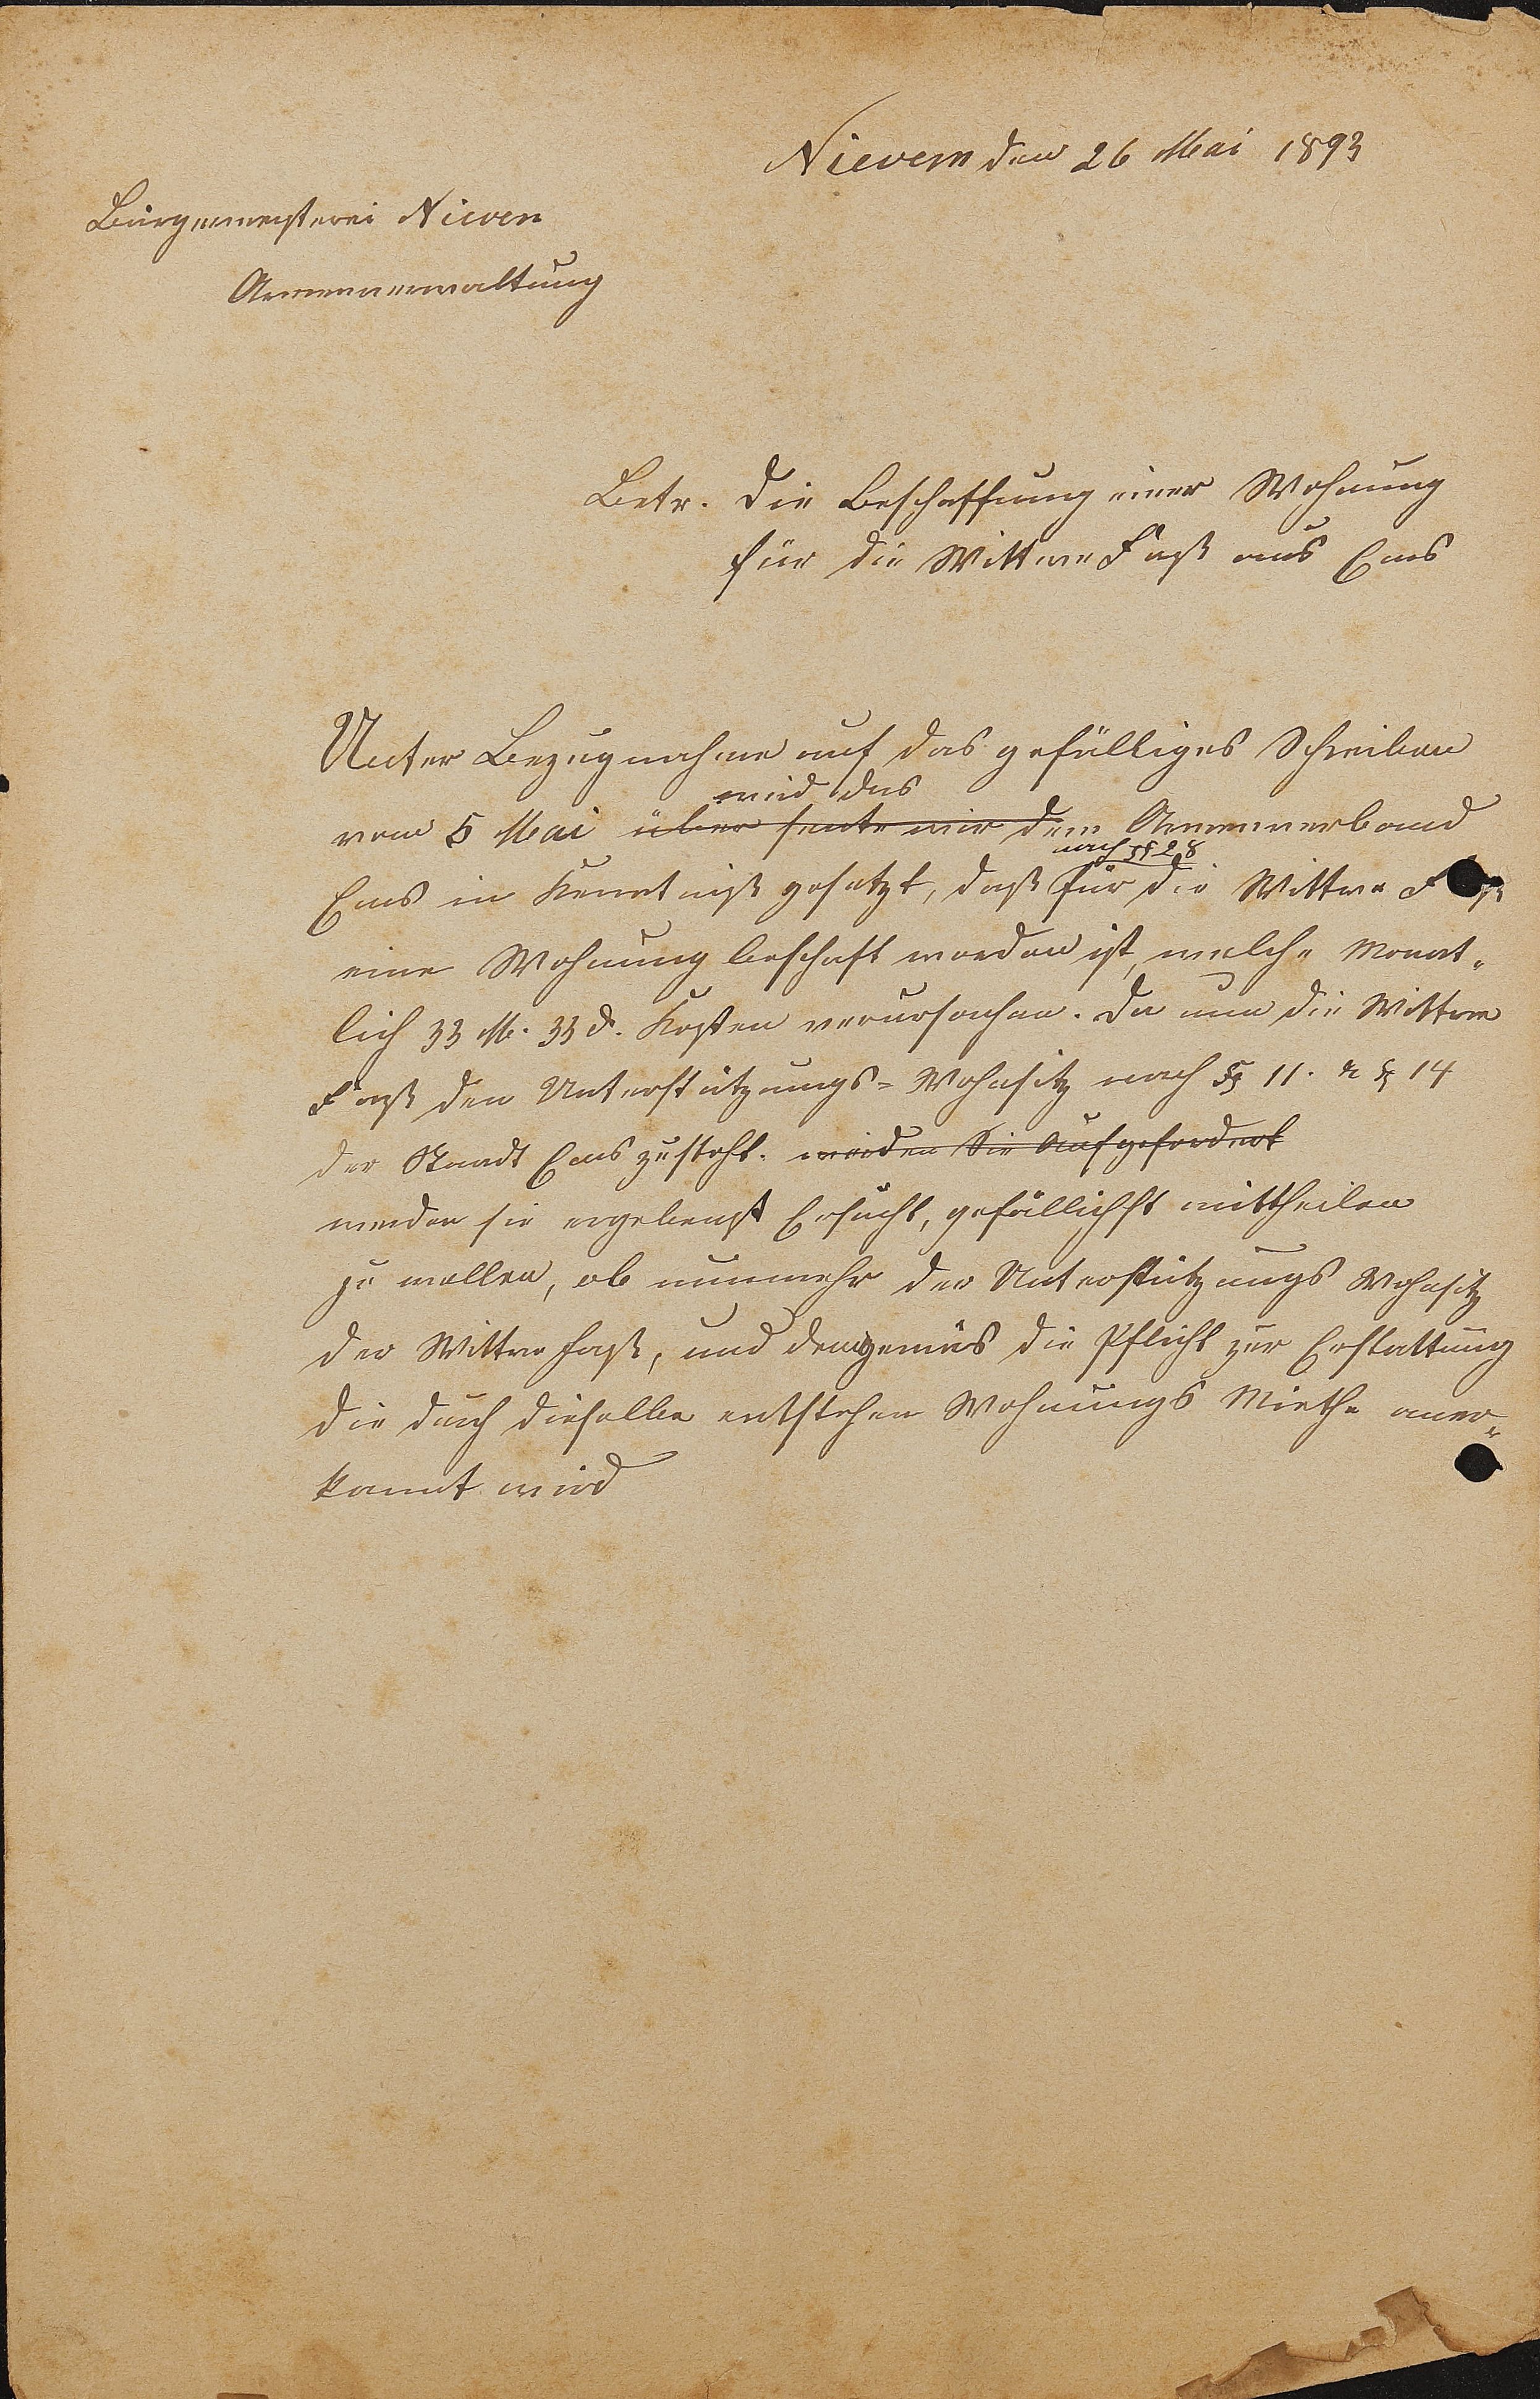 Nievern den 26 Mai 1893
Bürgermeisterei Nieven
Armenverwaltung
Betr. Die Beschaffung einer Wohnung
für die Wittwe Faß aus Ems
Unter Bezugnahme auf das gefälliges Schreiben
wird das
vom 5 Mai über sente wir dem Armenverband
nach § 28
Ems in Kenntniß gesetzt, daß für die Wittwe F
eine Wohnung beschaft worden ist, welche Monat-
lich 33 M. 33 d. Kosten verursachen. Da nun die Wittwe
Faß den Unterstützungs-Wohnsitz nach § 11. & § 14
der Staadt Ems zusteht. werden Sie Aufgefordert
werden sie ergebenst Ersucht, gefällichst mittheilen
zu wollen, ob nunmehr der Unterstützungs Wohnsitz
der Wittwe Faß, und demgemäs die Pflicht zur Erstattung
die durch dieselbe entstehen Wohnungs Miethe aner-
kannt wird